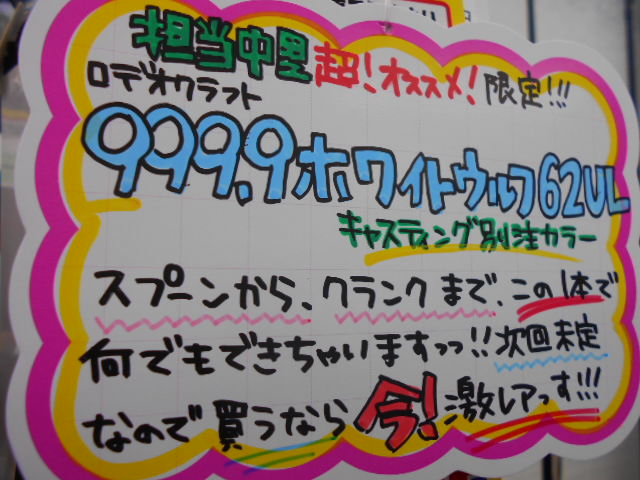 担当中里超!オススメ!限定!!!
ロデオクラフト
999.9ホワイトウルフ62UL
キャスティング別注カラー
スプーンから、クランクまで、この1本で
何でもできちゃいますっっ!!次回未定
なので買うなら今!激レアっす!!!